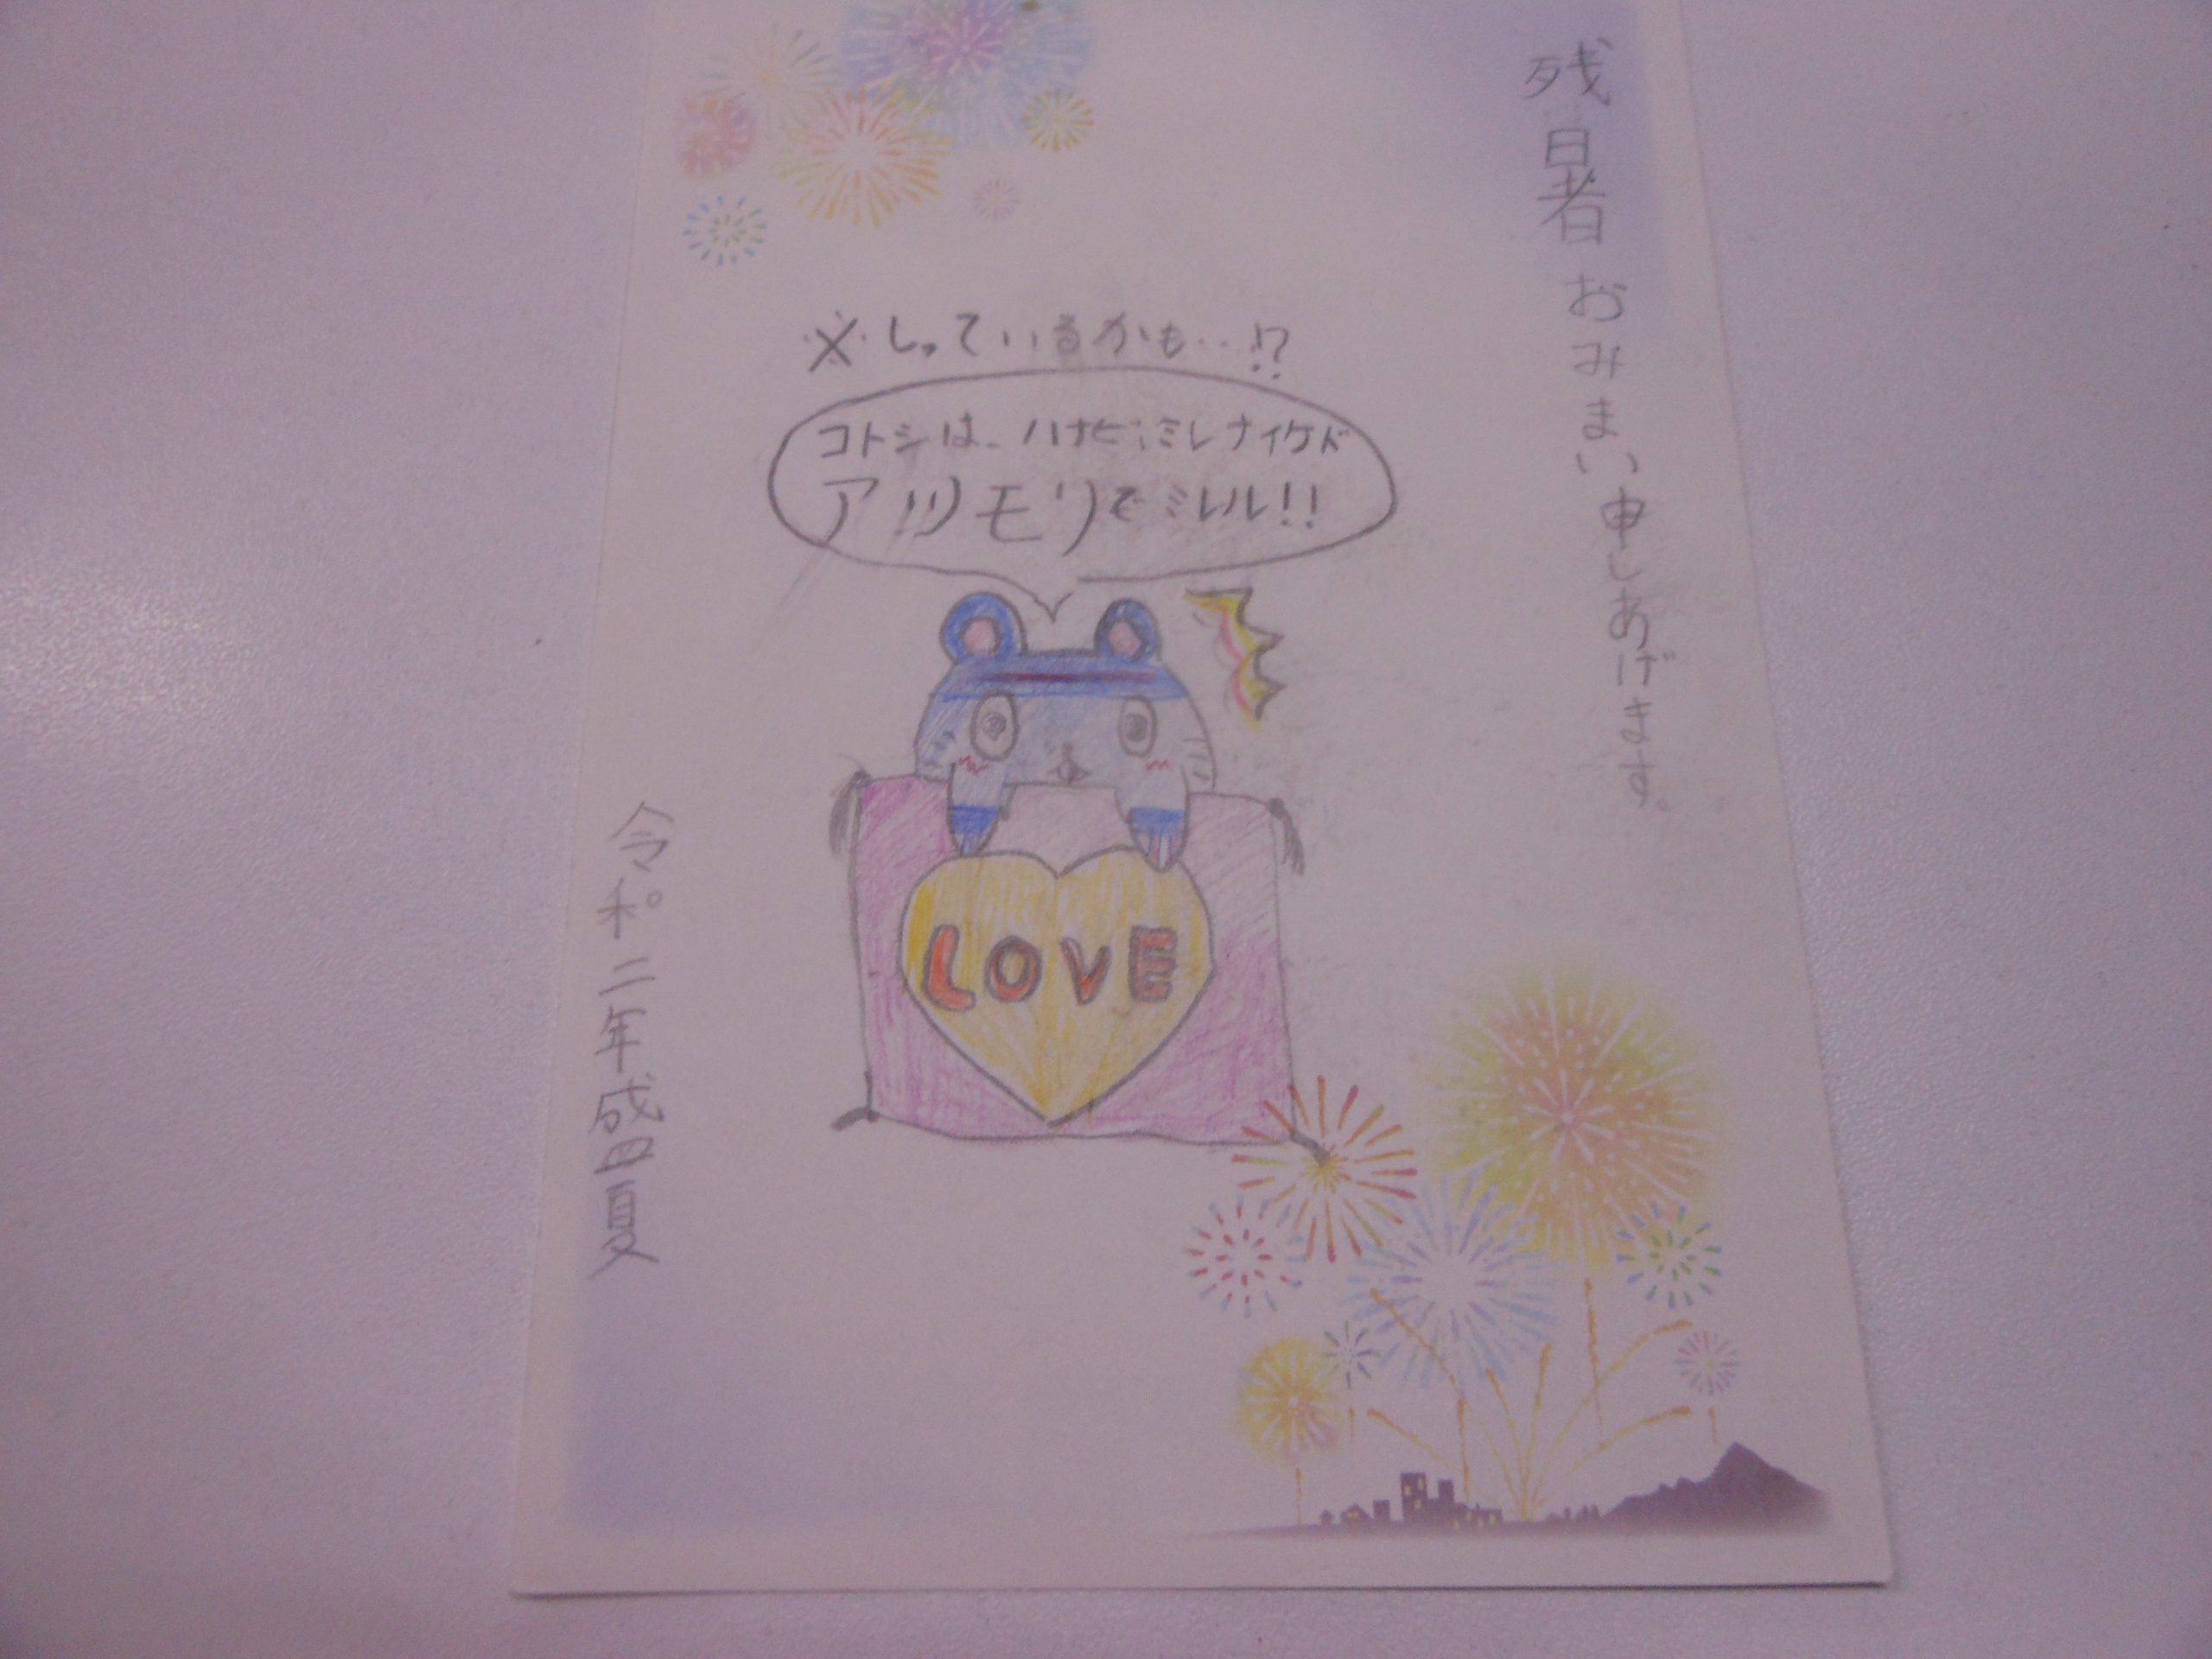 残暑おみまい申しあげます。
※しっているかも…!?
コトシは、ハナビミレナイケド
アツモリでミレル!!
LOVE
令和二年盛夏